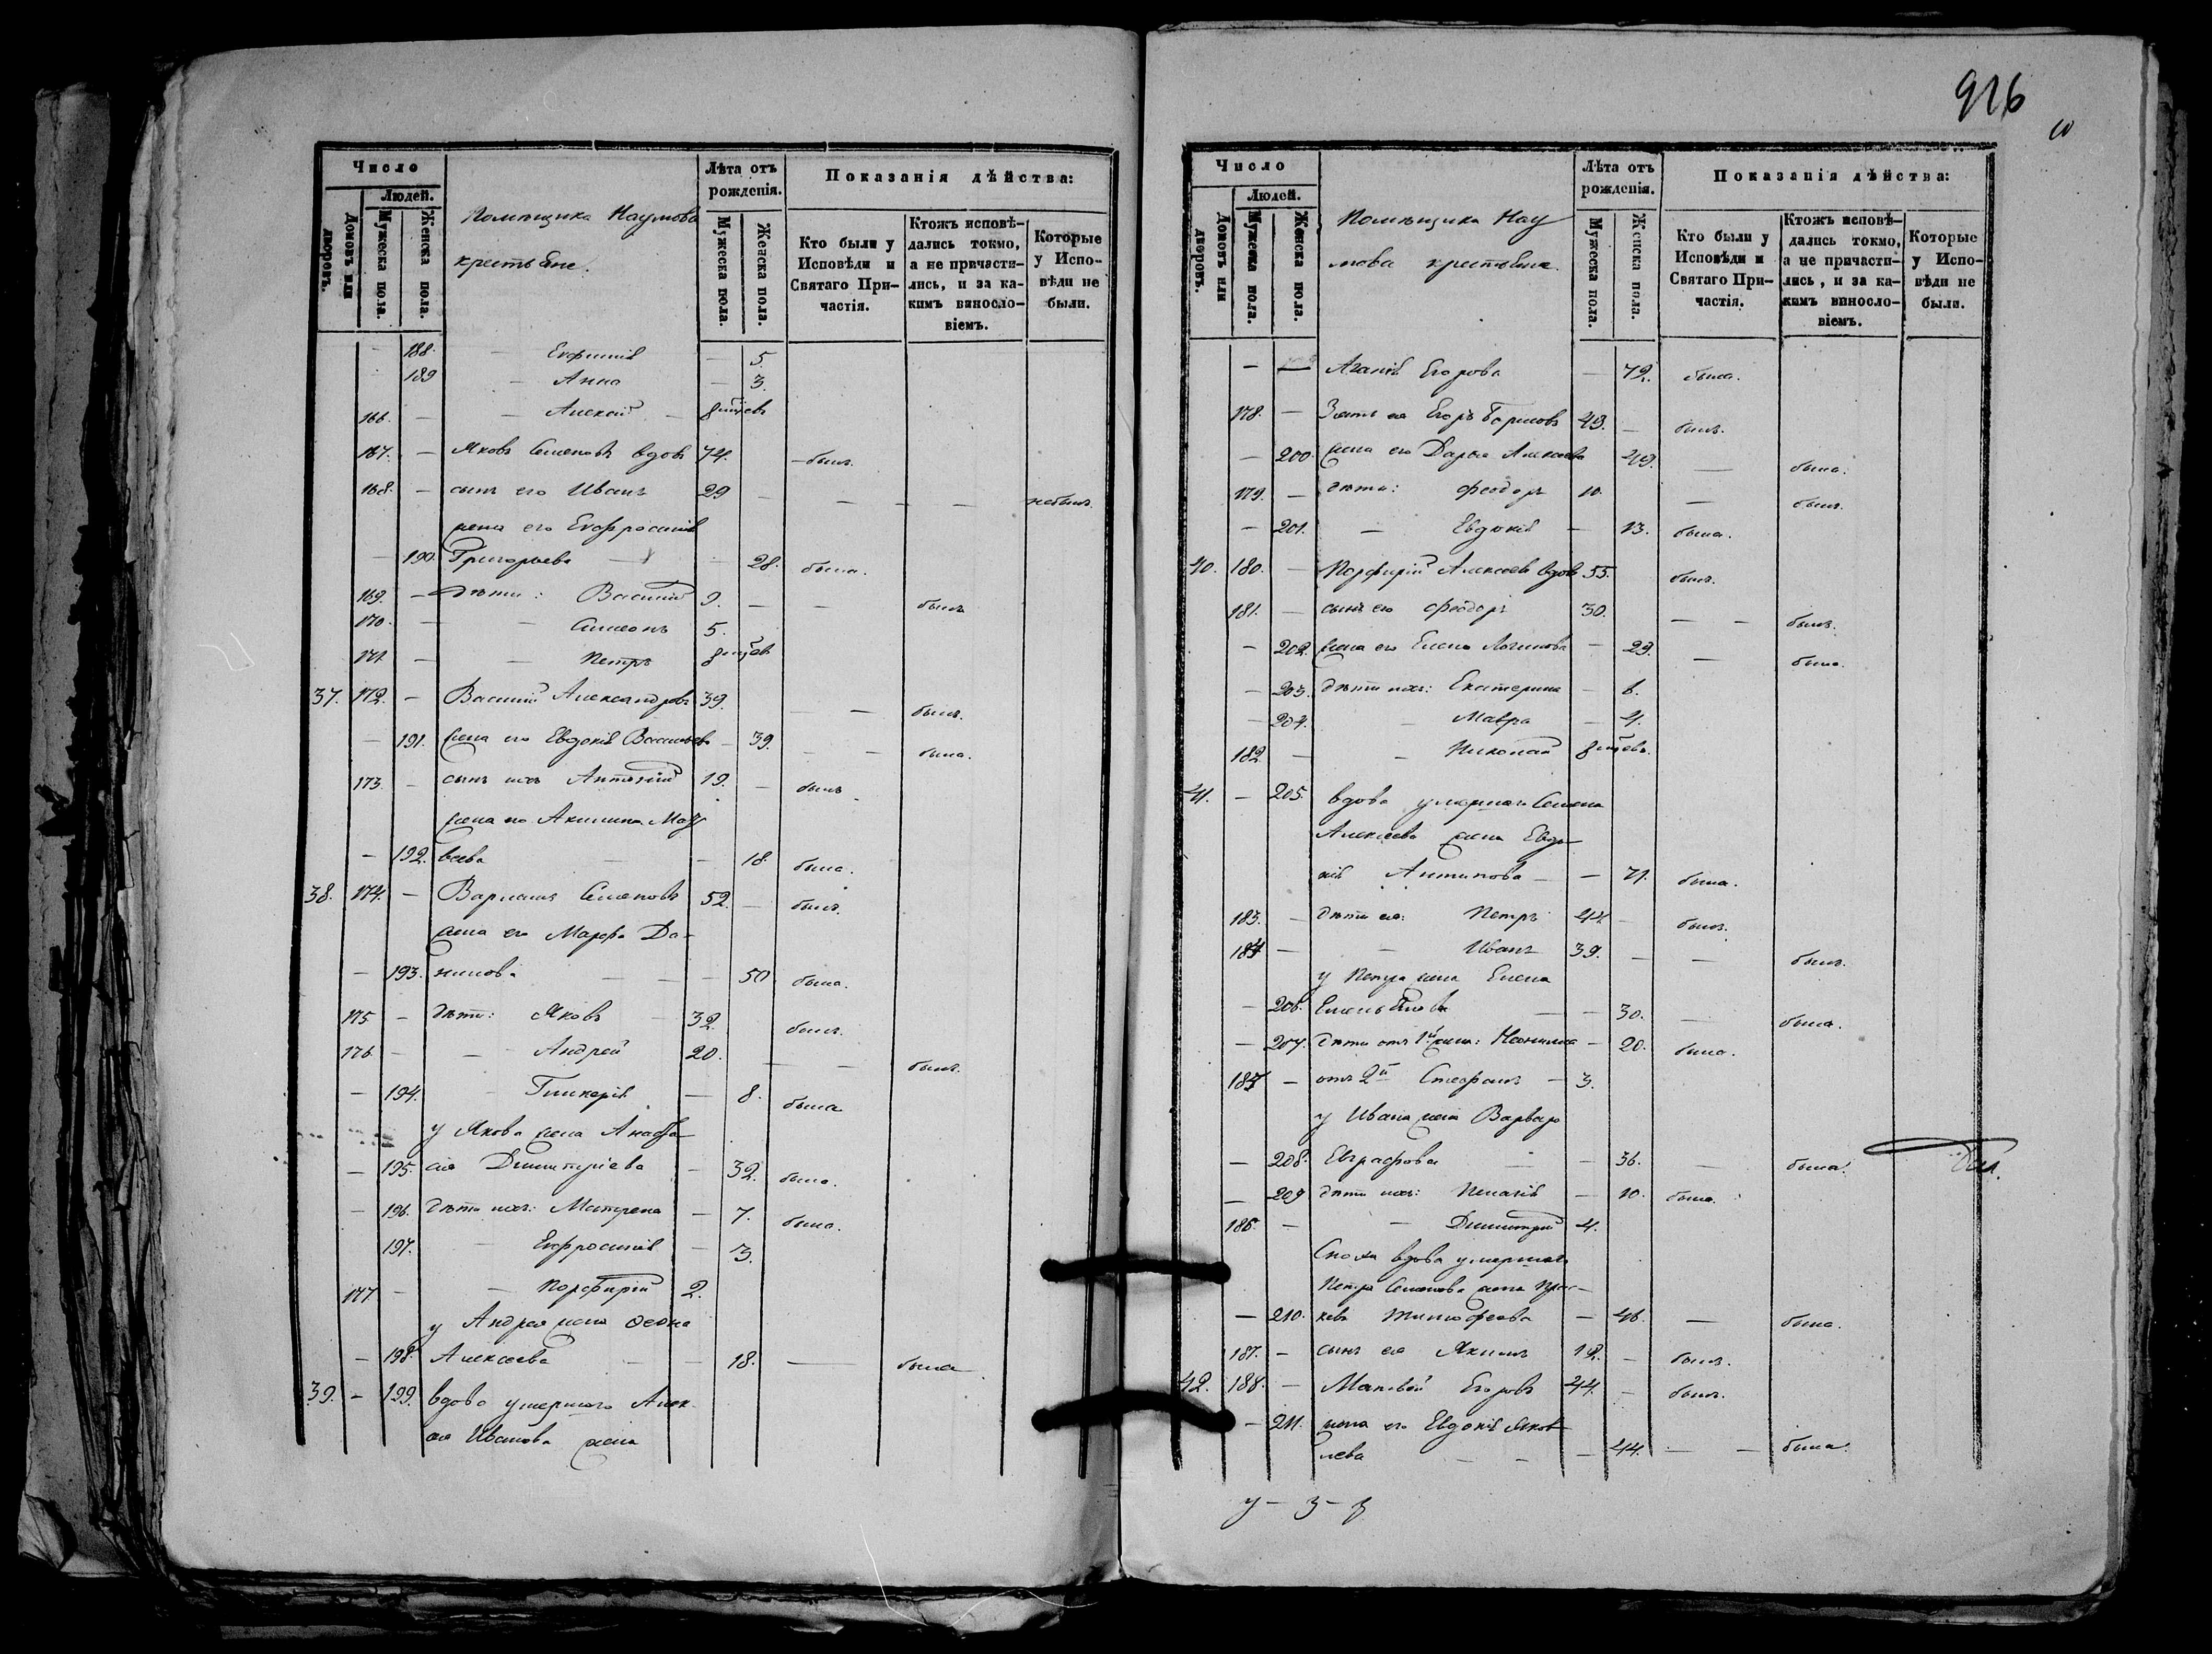 Число
Людей.
Домовъ или дворовъ.
Мужеска пола.
Женска пола.
Помѣщика Наумова
крестьяне.
Лѣта отъ рожденія.
Мужеска пола.
Женска пола.
Показанія дѣйства:
Кто были у Исповѣди и Святаго Причастія.
Ктожъ исповѣ-
дались токмо,
а не причасти-
лись, и за ка-
кимъ винословіемъ.
Которые у Исповѣди не были.
188. — Евфимія — 5.
189 — Анна — 3.
166. — — Алексѣй — 8 мѣсцевъ
167. — Яковъ Семеновъ вдовъ 74. — былъ.
168. — сынъ его Иванъ 29 — — — — небылъ.
жена его Евфросинія
— 190. Григорьева — — 28. была.
169. — дѣти: Василій 9. — — былъ
170. — — Симеонъ 5.
171. — — Петръ 8 мцев
37. 172. — Василій Александровъ 39. — — былъ.
— 191. жена его Евдокія Васильева — 39. — — была.
173. — сынъ ихъ Антоній 19. — былъ
жена его Акилина Мат
— 192. веева — — 18. была.
38. 174. — Варлаамъ Семеновъ 52. — былъ.
жена его Марфа Да-
— 193. нилова — — — 50 была.
175 — дѣти: Яковъ — 32. былъ.
176. — — Андрей 20. — — былъ.
— 194. — Гликерія — 8. была
у Якова жена Анаста
— 195. сія Димитріева — 32. была.
— 196. дѣти ихъ: Матрена — 7. была.
197. — Евфросинія — 3.
177 — — Порфирій 2.
у Андрея жена Феона
— 198. Алексеева — — 18. — была
39. — 199. вдова умершаго Алек
сѣя Иванова жена
926
Число
Людей.
Домовъ или дворовъ.
Мужеска пола.
Женска пола.
Помѣщика Нау
мова крестьяне.
Лѣта отъ рожденія.
Мужеска пола.
Женска пола.
Показанія дѣйства:
Кто были у Исповѣди и Святаго Причастія.
Ктожъ исповѣ-
дались токмо,
а не причасти-
лись, и за ка-
кимъ винословіемъ.
Которые у Исповѣди не были.
— — Агапія Егорова — 72. была.
178. — Зять ея Егоръ Борисовъ 49. — былъ.
— 200. жена его Дарья Алексѣева 49. — была.
179. — дѣти: Феодоръ 10. — былъ.
— 201. — Евдокія — 13. была.
40. 180. — Порфирій Алексеевъ вдовъ 55. былъ.
181. — сынъ его Феодоръ 30. — — былъ.
— 202. жена его Елена Логинова — 29. — была.
— 203. дѣти ихъ: Екатерина — 6.
— 204. — Мавра — 4.
182. — — Николай 8 мцевъ.
41. — 205. вдова умершаго Семена
Алексеева жена Евдо
кія Антипова — — 71. была.
183. — дѣти ея: Петръ 44 — былъ.
184 — — Иванъ 39. — — былъ.
у Петра жена Елена
— 206. Емельянова — — 30. — была.
— 207. дѣти отъ 1й жены: Неонила — 20. была.
185 — отъ 2й Стефанъ — 3.
у Ивана жена Варвара
— 208. Евграфова — — 36. — была.
— 209 дѣти ихъ: Пелагія — 10. была.
186 — — Димитрій 4.
Сноха вдова умершаго
Петра Семенова жена Прас-
— 210. ковья Тимофеева — 46. — была.
187. — сынъ ея Якимъ 12. — былъ.
42. 188. — Матвѣй Егоровъ 44. — былъ.
— 211. жена его Евдокія Яков
лева — — — 44. — — была.